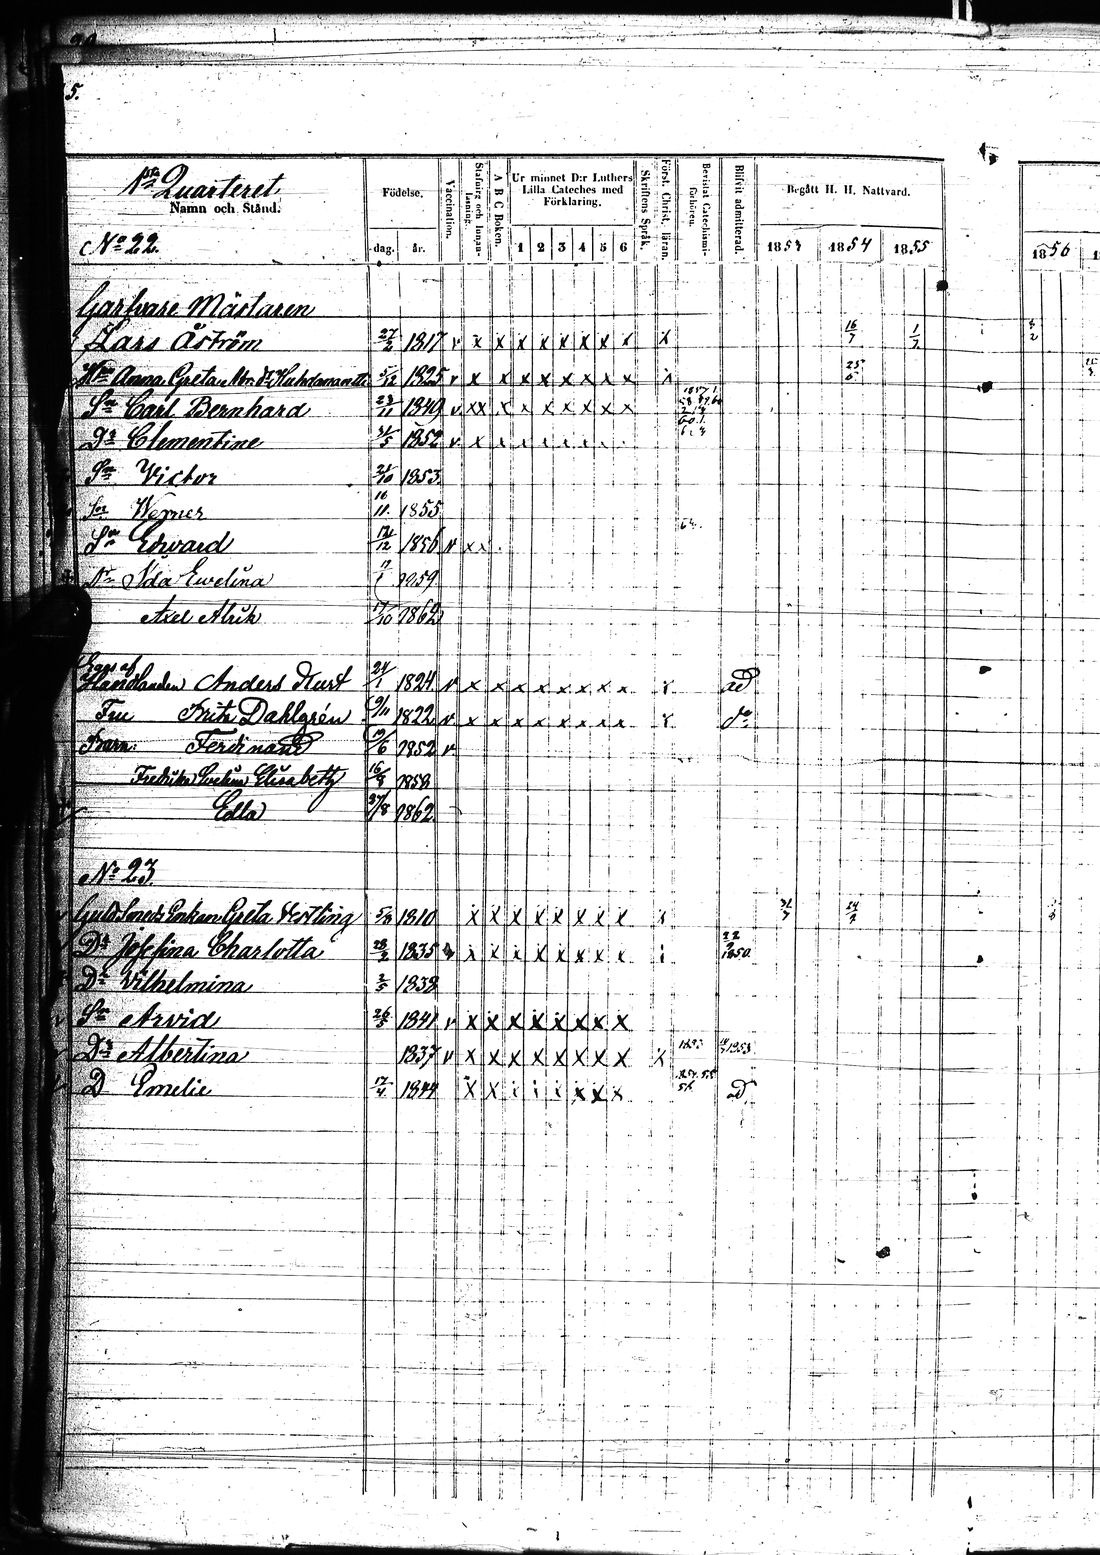 5.
Quarteret
Namn och Stånd.
Födelse.
dag. år.
Vaccination.
Stafning och Innan-läsning.
A B C Boken.
Ur minnet D:r Luthers
Lilla Cateches med
Förklaring.
1 2 3 4 5 6
Skriftens Språk.
Först. Christ. läran.
Bevistat Catechismi-förhören.
Blifvit admitterad.
Begått H. H. Nattvard.
1853 1854 1855
1856
No 22.
Garfvare Mästaren
Lars Åström 27/2 1817 v x x x x x x x x x 16/7 1/7
Anna Greta 5/12 1825 v x x x x x x x x x 25/6
Sn Carl Bernhard 23/11 1849 v xx x x x x x x x
Dr Clementine 31/5 1852 v x x x x x x x
Sn Victor 21/10 1853
Son Werner 16/11 1855
Sn Edvard 12/12 1856 v x x
Dr Ida Ewelina 1859
Axel Alrik 17/10 1862
Handlanden Anders Kurt 24/1 1824 v x x x x x x x x x ad
Fru Brita Dahlgrén 9/11 1822 v x x x x x x x x x do
Barn: Ferdinand 19/6 1852 v
Elisabeth 16/8 1858
Edla 27/8 1862
No 23.
Guld Smeds Enkan Greta 1810 x x x x x x x x x 31/7 24/2
Dr Josefina Charlotta 28/2 1835 x x x x x x x x 1850
Dr Vilhelmina 2/5 1838
Sn Arvid 26/5 1841 v x x x x x x x x
Dr Albertina 1837 v x x x x x x x x x 1853 1853
D Emelie 17/4 1844 x x x x x x x x ad